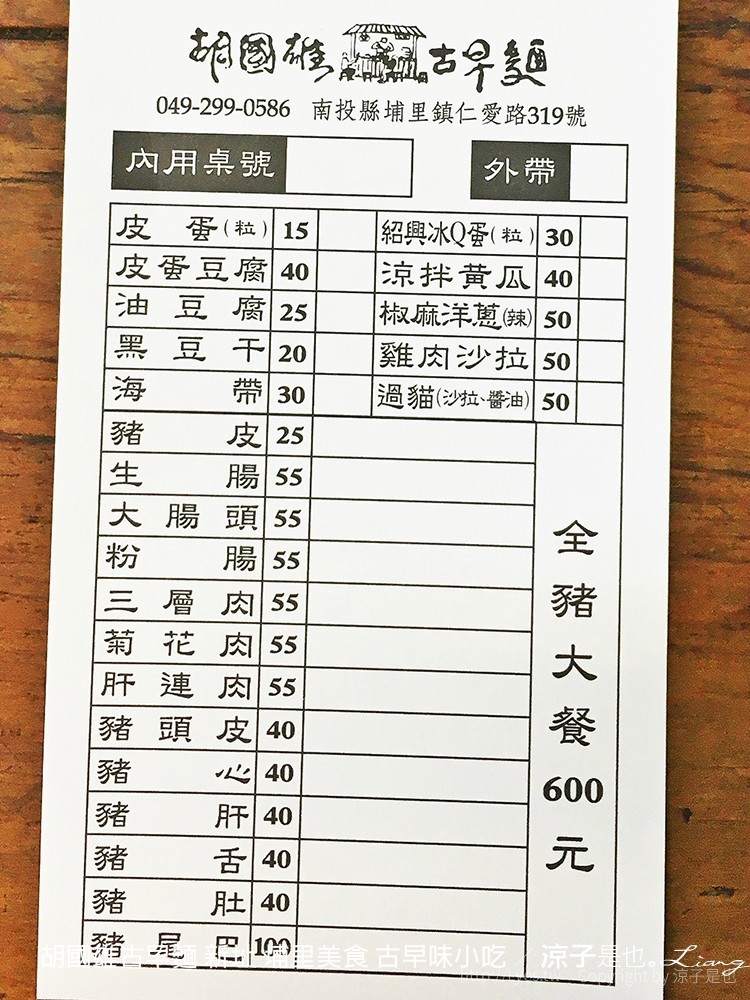 胡國雄 古早麵
049-299-0586 南投縣埔里鎮仁愛路319號
內用桌號 外帶
皮蛋(粒) 15 紹興冰Q蛋(粒) 30
皮蛋豆腐 40 涼拌黃瓜 40
油豆腐 25 椒麻洋蔥(辣) 50
黑豆干 20 雞肉沙拉 50
海帶 30 過貓(沙拉、醬油) 50
豬皮 25
生腸 55
大腸頭 55
粉腸 55
三層肉 55
菊花肉 55
肝連肉 55
豬頭皮 40
豬心 40
豬肝 40
豬舌 40
豬肚 40
豬尾巴 100
全豬大餐600元
胡國雄古早麵 新址 埔里美食 古早味小吃 / 涼子是也。Liang
Copyright by 涼子是也